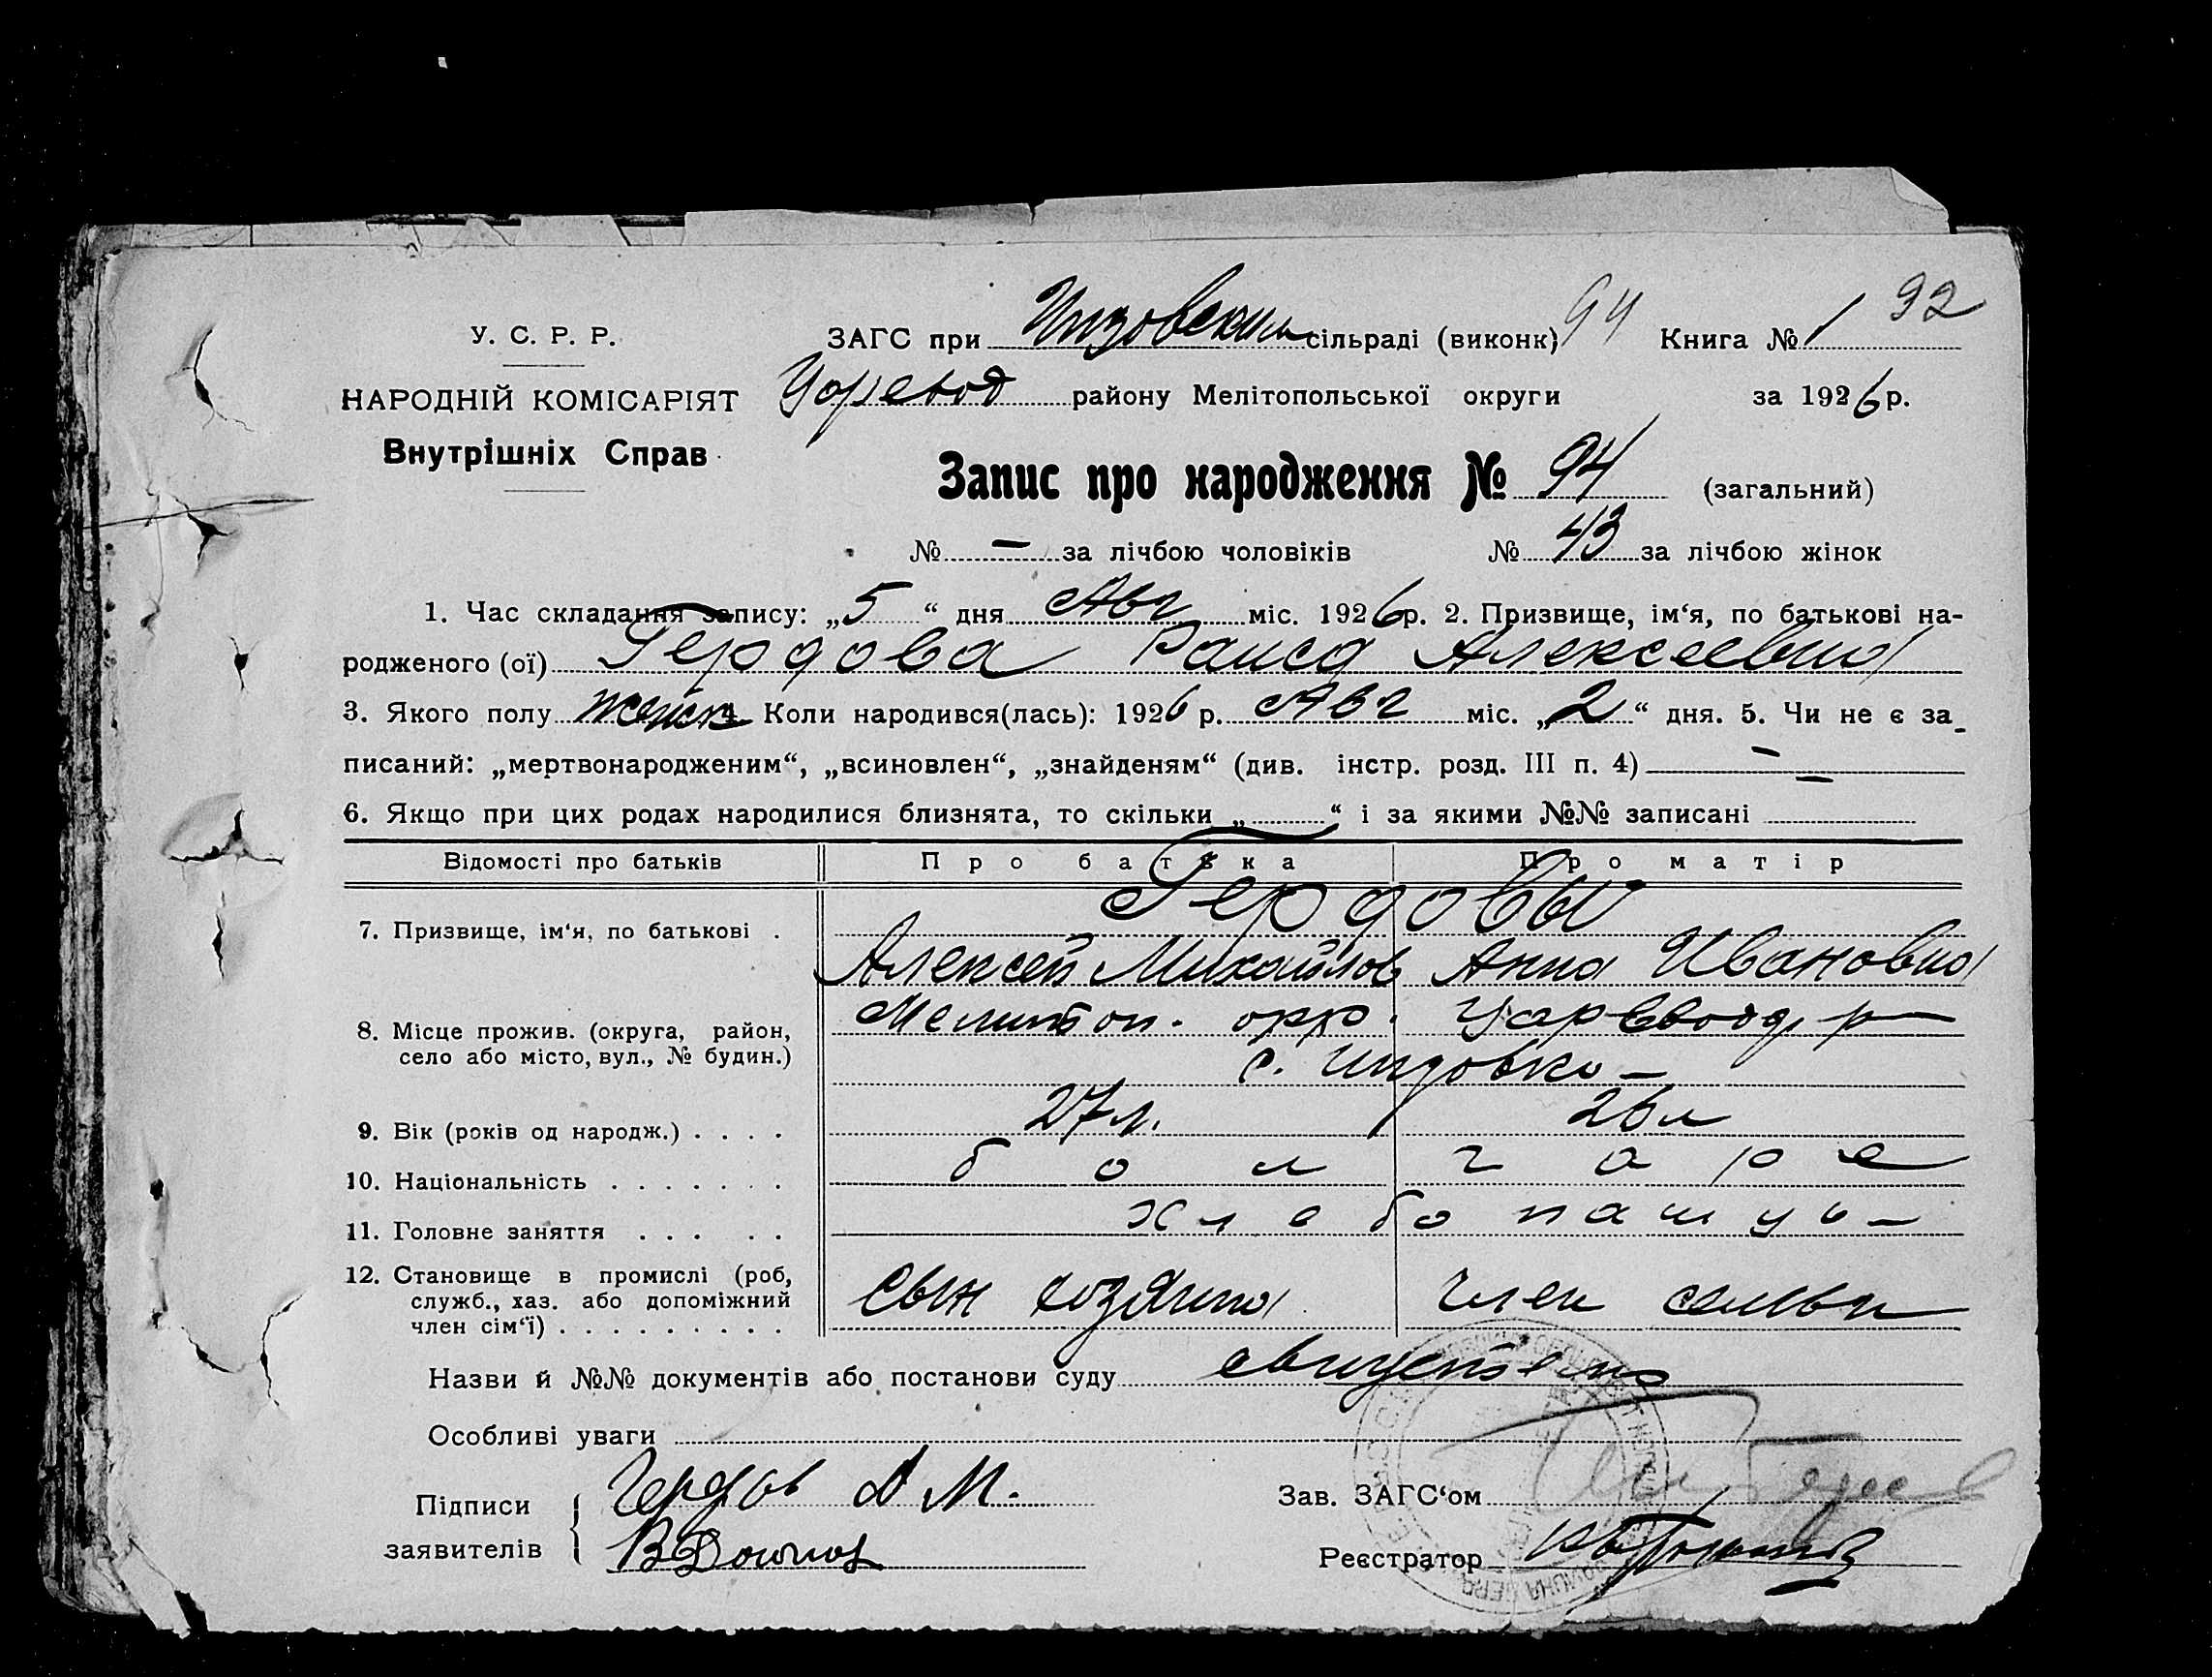 94 32
У. С. Р. Р. ЗАГС при Инзовском сільраді (виконк) Книга № 1
НАРОДНІЙ КОМІСАРІЯТ Царевод району Мелітопольської округи за 1926 р.
Внутрішніх Справ
Запис про народження № 94 (загальний)
№ — за лічбою чоловіків № 43 за лічбою жінок
1. Час складання запису: „5“ дня Авг міс. 1926 р. 2. Призвище, ім‘я, по батькові на-
родженого (ої) Гердова Раиса Алексеевна
3. Якого полу женск 4. Коли народився(лась): 1926 р. Авг міс. „2“ дня. 5. Чи не є за-
писаний: „мертвонародженим“, „всиновлен“, „знайденям“ (див. інстр. розд. III п. 4) —
6. Якщо при цих родах народилися близнята, то скільки „ “ і за якими №№ записані —
Відомості про батьків Про батька Про матір
Гердовы
7. Призвище, ім‘я, по батькові . Алексей Михайлов Анна Ивановна
8. Місце прожив. (округа, район, Мелитоп. окр. Царевод р—
село або місто, вул., № будин.) с. Инзовка —
9. Вік (років од народж.) . . . . 27 л. 26 л
10. Національність . . . . . . . болгаре
11. Головне заняття . . . . . хлебопашцы —
12. Становище в промислі (роб, сын хозяина член семьи
служб., хаз. або допоміжний
член сім‘ї) . . . . . . . . .
Назви й №№ документів або постанови суду
Особливі уваги
Підписи Гердов А М.
заявителів
Зав. ЗАГС‘ом
Реєстратор